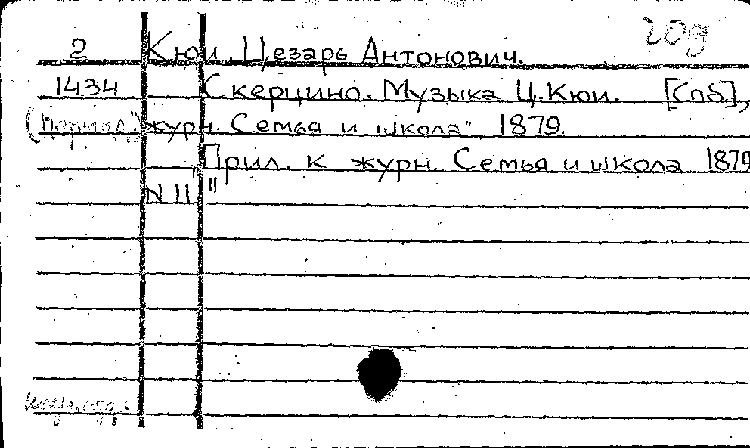 20g
2 Кюи Цезарь Антонович.
1434 Скерцино. Музыка Ц. Кюи. [Спб],
журн. Семья и школа", 1879.
"Прил. к журн. Семья и школа 1879
N 11."